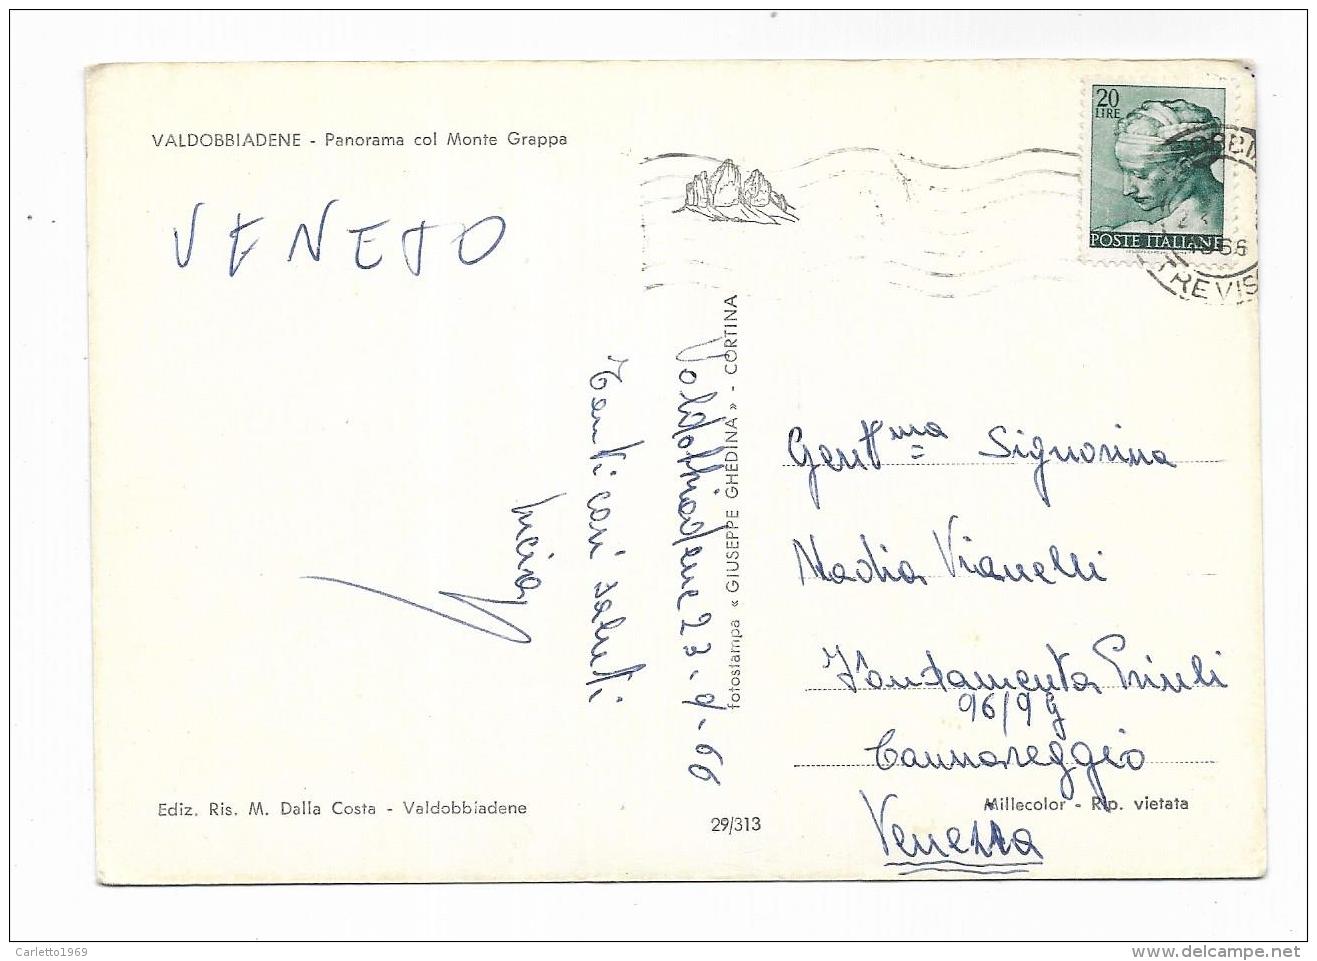 VALDOBBIADENE - Panorama col Monte Grappa
VENETO
20
LIRE
POSTE ITALIANE
OBBIA
1966
TREVIS
Valdobbiadene 23.9.66
Tanti cari saluti
Lucia
fotostampa « GIUSEPPE GHEDINA » - CORTINA
Gent.ma Signorina
Nadia Vianelli
Fondamenta Priuli
96/99
Cannareggio
Venezia
Ediz. Ris. M. Dalla Costa - Valdobbiadene
29/313
Millecolor - Rip. vietata
Carletto1969
www.delcampe.net